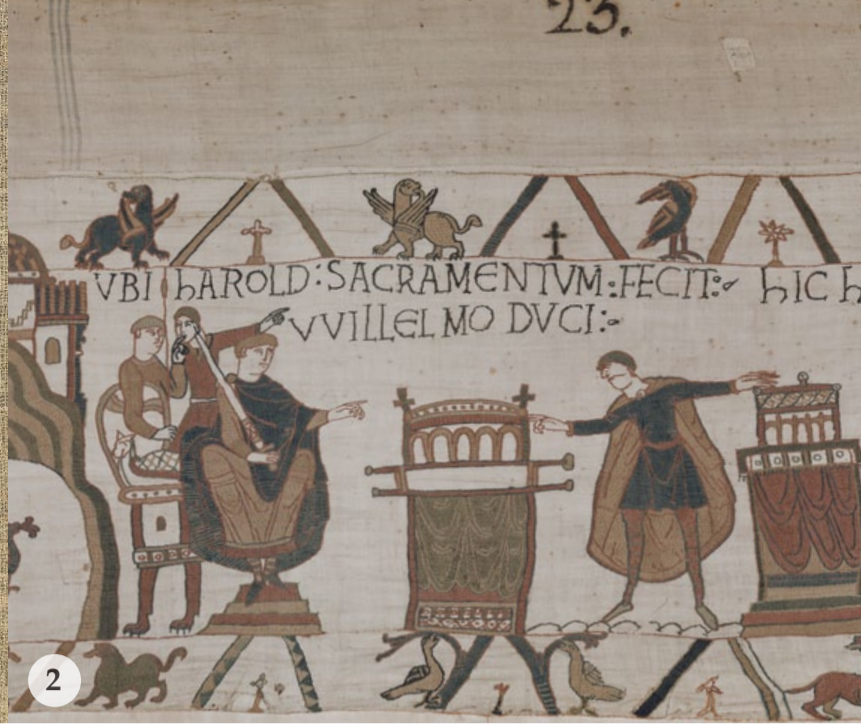 23.
VBI hAROLD : SACRAMENTVM : FECIT : hIC h
VVILLELMO DVCI :
2